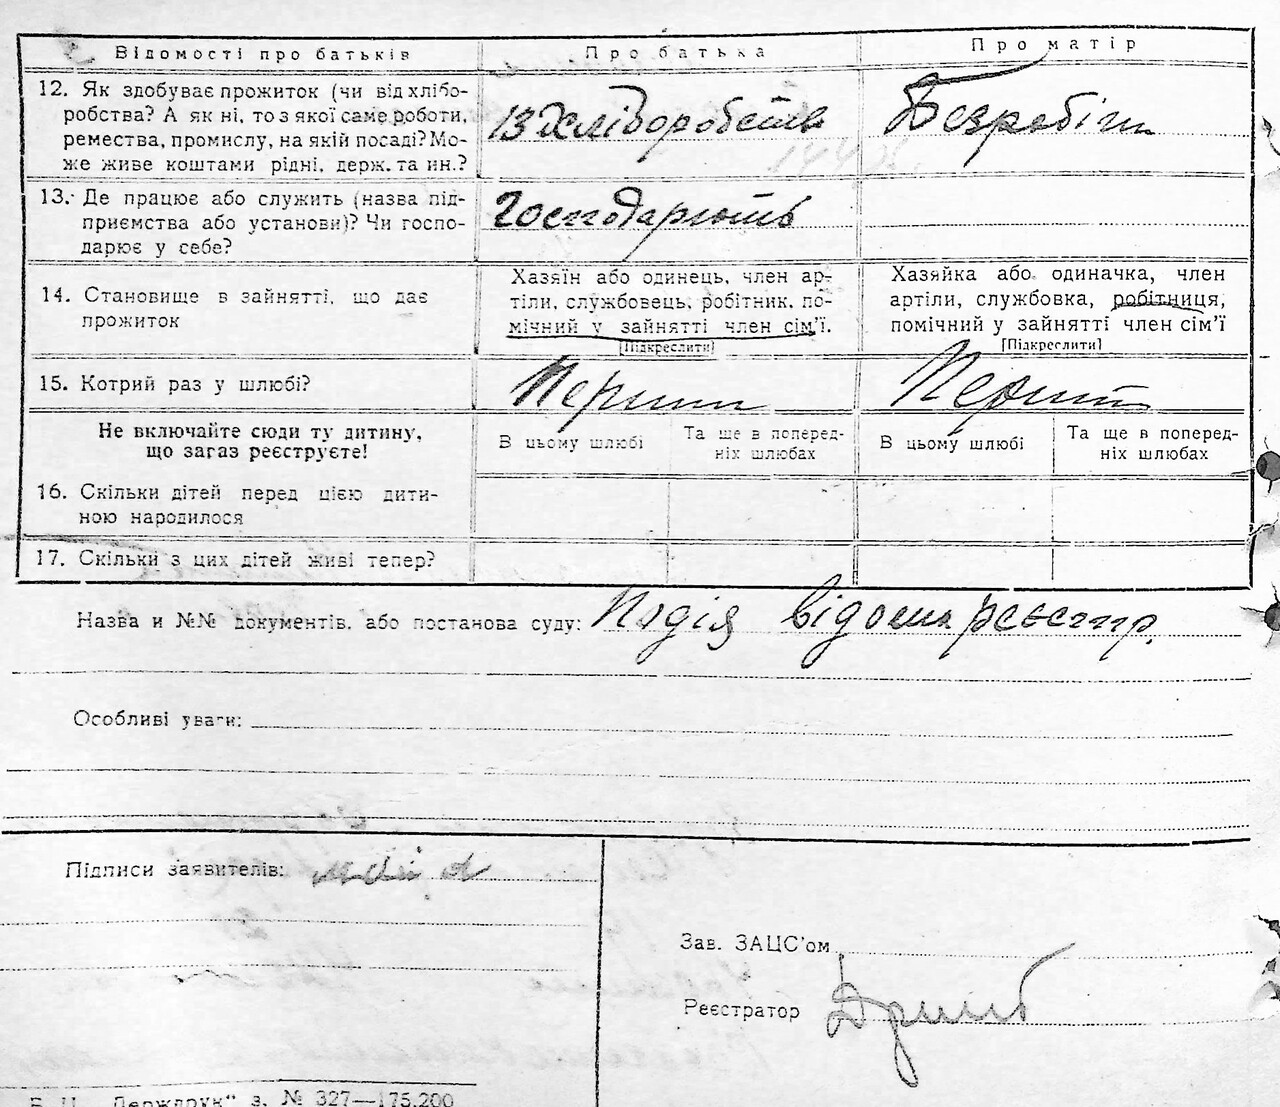 Відомості про батьків Про батька Про матір
12. Як здобуває прожиток (чи від хлібо-
робства? А як ні, то з якої саме роботи,
ремества, промислу, на якій посаді? Мо-
же живе коштами рідні, держ. та ин.?
Із Хліборобства Безробітн
13. Де працює або служить (назва під-
приємства або установи)? Чи госпо-
дарює у себе?
Господарють
14. Становище в зайнятті, що дає
прожиток
Хазяїн або одинець, член ар-
тіли, службовець, робітник, по-
мічний у зайнятті член сім’ї.
[Підкреслити]
Хазяйка або одиначка, член
артіли, службовка, робітниця,
помічний у зайнятті член сім’ї
[Підкреслити]
15. Котрий раз у шлюбі? Перший Перший
Не включайте сюди ту дитину,
що загаз реєструєте!
В цьому шлюбі
Та ще в поперед-
ніх шлюбах
В цьому шлюбі
Та ще в поперед-
ніх шлюбах
16. Скільки дітей перед цією дити-
ною народилося
17. Скільки з цих дітей живі тепер?
Назва и №№ документів, або постанова суду: Подія відома реєстр.
Особливі уваги:
Підписи заявителів:
Зав. ЗАЦС’ом
Реєстратор
Держдрук" з. № 327—175.200